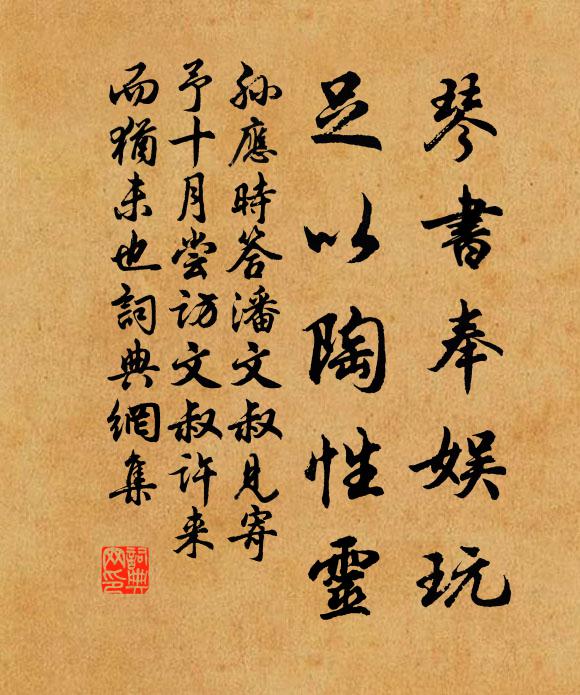 琴書奉娯玩
足以陶性靈
孫應時答潘文叔見寄
予十月嘗訪文叔許来
而猶未也詞典網集
詞典
网印